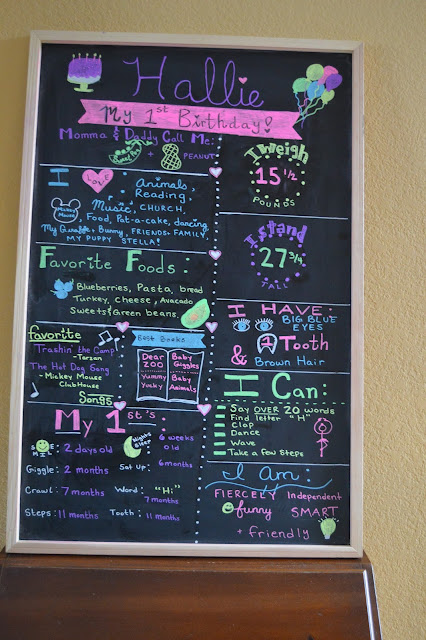 Hallie
My 1st Birthday!
Momma & Daddy Call Me:
+
PEANUT
I LOVE
Animals,
Reading,
Music, CHURCH,
Food, Pat-a-cake, dancing,
My Giraffe + Bunny, FRIENDS + FAMILY,
MY PUPPY STELLA!
Favorite Foods:
Blueberries, Pasta, bread
Turkey, cheese, Avacado
Sweets & Green beans.
favorite
Trashin' the Camp
- Tarzan
The Hot Dog Song
- Mickey Mouse
ClubHouse
Songs
Best Books
Dear Zoo
Baby Giggles
Yummy Yucky
Baby Animals
My 1st's:
SMILE: 2 days old
Nights Sleep 6 weeks old
Giggle: 2 months
Sat Up: 6 months
Crawl: 7 months
Word: "Hi"
7 months
Steps: 11 months
Tooth: 11 months
I weigh
15 1/2
POUNDS
I stand
27 3/4"
TALL
I HAVE:
BIG BLUE
EYES
& 1 Tooth
Brown Hair
I Can:
Say OVER 20 words
Find letter "H"
Clap
Dance
Wave
Take a few steps
I Am:
FIERCELY Independent
funny SMART
+ friendly